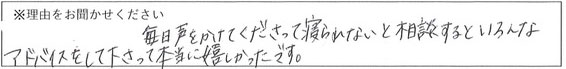 ※理由をお聞かせください
毎日声をかけてくださって寝られないと相談するといろんな
アドバイスをして下さって本当に嬉しかったです。